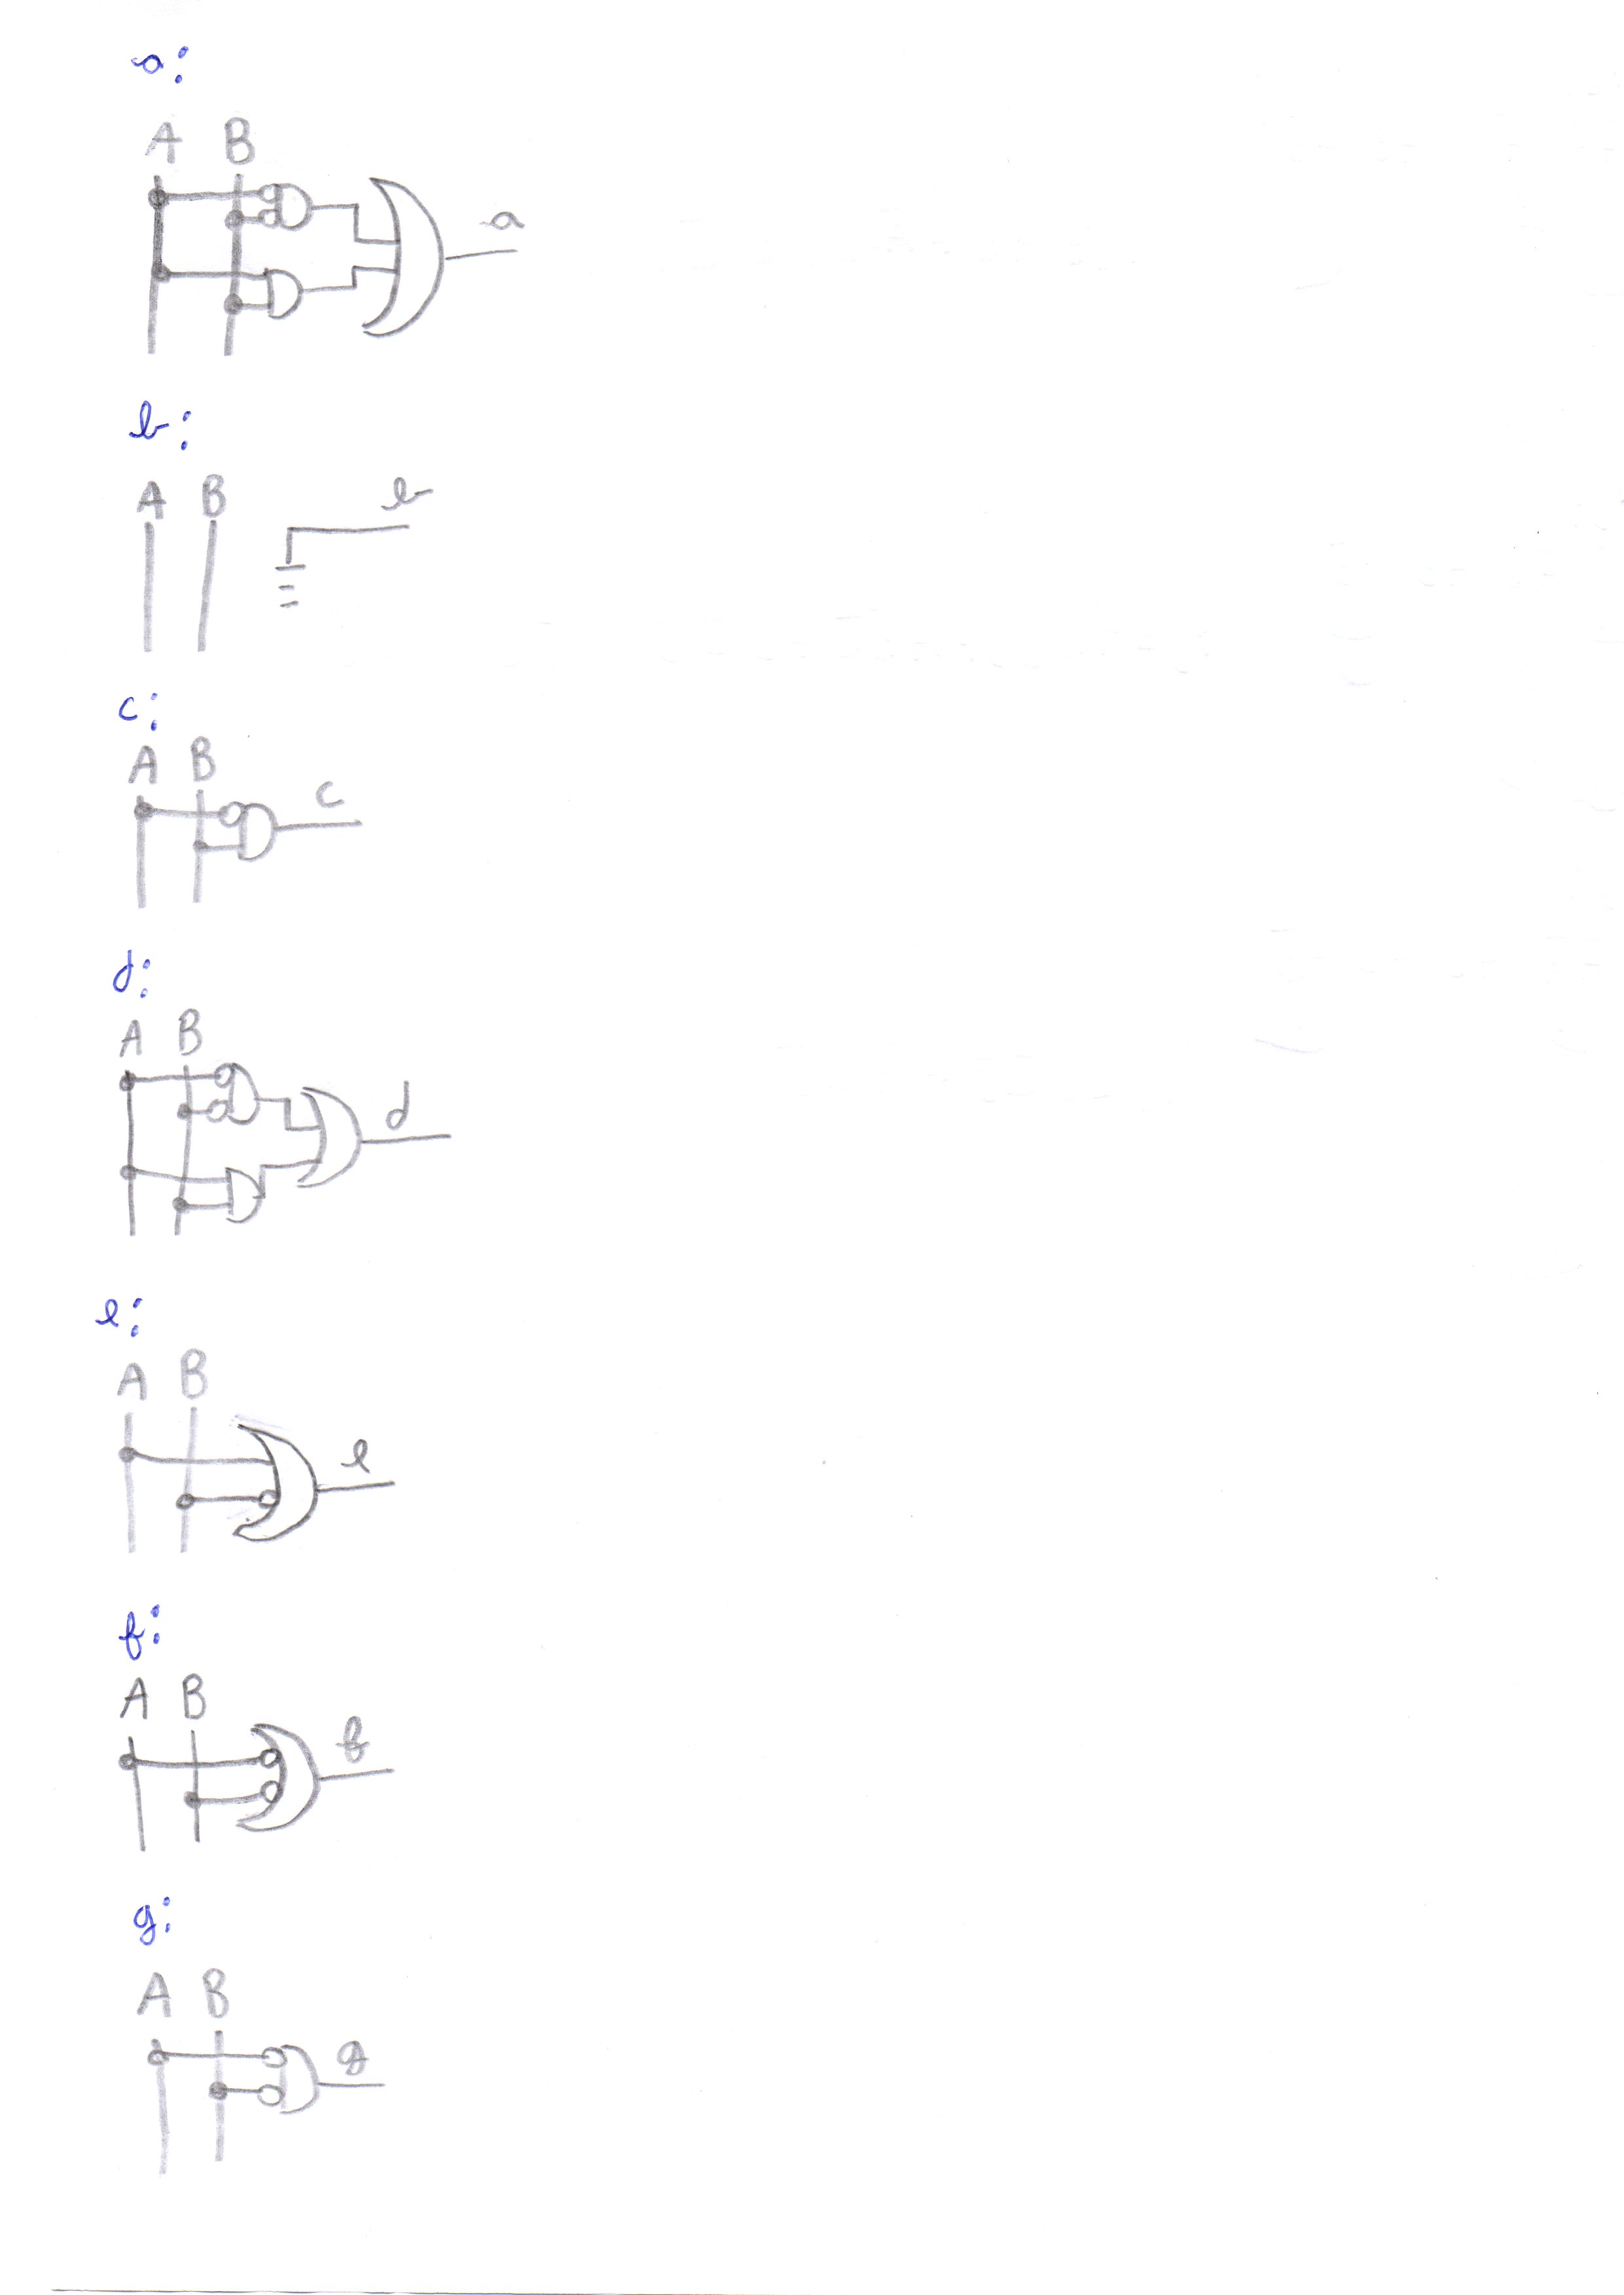 a:
A B
a
b:
A B
b
c:
A B
c
d:
A B
d
e:
A B
e
f:
A B
f
g:
A B
g